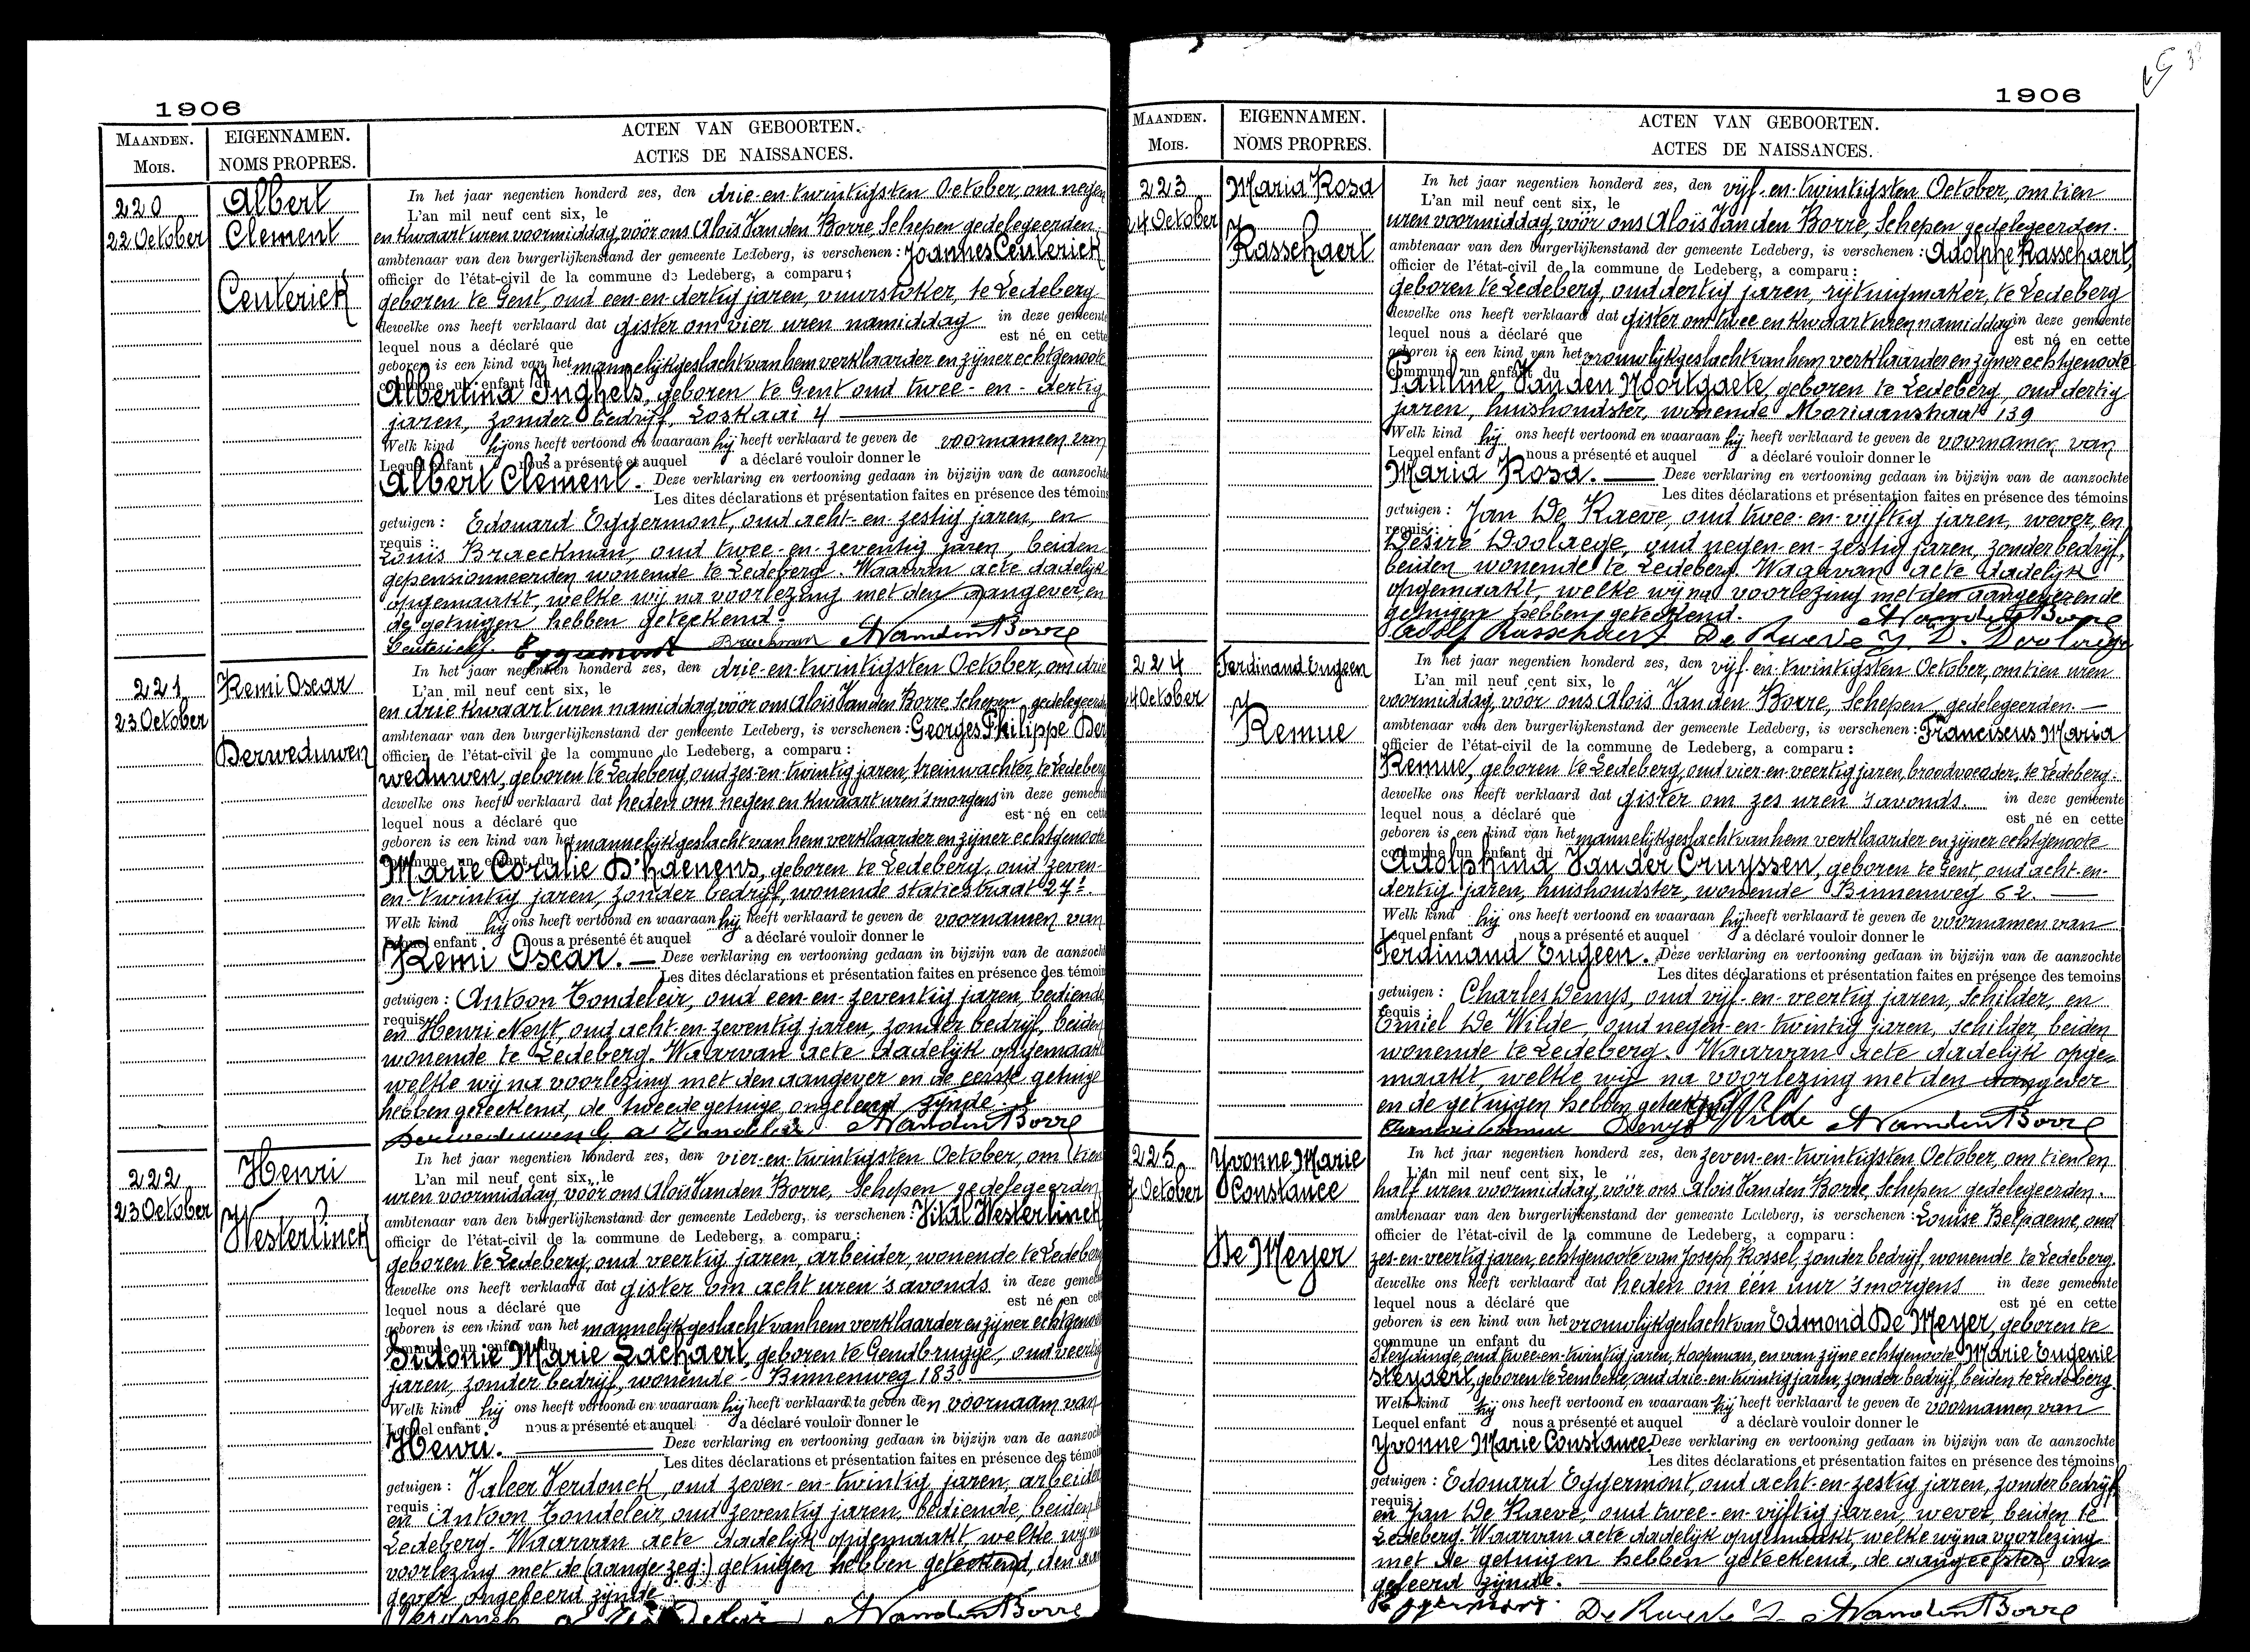 1906
MAANDEN.
Mois.
EIGENNAMEN.
NOMS PROPRES.
ACTEN VAN GEBOORTEN.
ACTES DE NAISSANCES.
220
22 October
Albert
Clement
Ceuterick
In het jaar negentien honderd zes, den drie-en-twintigsten October, om negen
L'an mil neuf cent six, le
en kwaart uren voormiddag, vóór ons Aloïs Van den Borre, Schepen gedelegeerden
ambtenaar van den burgerlijkenstand der gemeente Ledeberg, is verschenen: Joannes Ceuterick
officier de l'état-civil de la commune de Ledeberg, a comparu:
geboren te Gent, oud een-en-dertig jaren, vuurstoker, te Ledeberg
dewelke ons heeft verklaard dat gister om vier uren namiddag in deze gemeente
lequel nous a déclaré que est né en cette
geboren is een kind van het mannelijk geslacht van hem verklaarder en zijner echtgenoote
commune un enfant du
Albertina Inghels, geboren te Gent oud twee-en-dertig
jaren, zonder bedrijf, Loskaai 4
Welk kind hij ons heeft vertoond en waaraan hij heeft verklaard te geven de voornamen van
Lequel enfant nous a présenté et auquel a déclaré vouloir donner le
Albert Clement. Deze verklaring en vertooning gedaan in bijzijn van de aanzochte
Les dites déclarations et présentation faites en présence des témoins
getuigen: Edouard Eggermont, oud acht-en-zestig jaren, en
requis:
Louis Braeckman, oud twee-en-zeventig jaren, beiden
gepensionneerden wonende te Ledeberg. Waarvan acte dadelijk
opgemaakt, welke wij na voorlezing met den aangever, en
de getuigen hebben geteekend.
Ceuterick J. Eggermont Braeckman A Van den Borre
221
23 October
Remi Oscar
Derweduwen
In het jaar negentien honderd zes, den drie-en-twintigsten October, om drie
L'an mil neuf cent six, le
en drie kwaart uren namiddag, vóór ons Aloïs Van den Borre, Schepen gedelegeerde
ambtenaar van den burgerlijkenstand der gemeente Ledeberg, is verschenen: Georges Philippe Der
officier de l'état-civil de la commune de Ledeberg, a comparu:
weduwen, geboren te Ledeberg, oud zes-en-twintig jaren, treinwachter, te Ledeberg
dewelke ons heeft verklaard dat heden om negen en kwaart uren 's morgens in deze gemeente
lequel nous a déclaré que est né en cette
geboren is een kind van het mannelijk geslacht van hem verklaarder en zijner echtgenoote
commune un enfant du
Marie Coralie D'haenens, geboren te Ledeberg, oud zeven-
en-twintig jaren, zonder bedrijf, wonende statiestraat 27.
Welk kind hij ons heeft vertoond en waaraan hij heeft verklaard te geven de voornamen van
Lequel enfant nous a présenté et auquel a déclaré vouloir donner le
Remi Oscar. — Deze verklaring en vertooning gedaan in bijzijn van de aanzochte
Les dites déclarations et présentation faites en présence des témoin
getuigen: Antoon Tondeleir, oud een-en-zeventig jaren, bediende
requis:
en Henri Neyt oud acht-en-zeventig jaren, zonder bedrijf, beiden
wonende te Ledeberg. Waarvan acte dadelijk opgemaakt
welke wij na voorlezing met den aangever en de eerste getuige
hebben geteekend, de tweede getuige ongeleerd zijnde.
Derweduwen G a Tondeleir A Van den Borre
222
23 October
Henri
Westerlinck
In het jaar negentien honderd zes, den vier-en-twintigsten October, om tien
L'an mil neuf cent six, le
uren voormiddag, vóór ons Aloïs Van den Borre, Schepen gedelegeerden
ambtenaar van den burgerlijkenstand der gemeente Ledeberg, is verschenen: Vital Westerlinck
officier de l'état-civil de la commune de Ledeberg, a comparu:
geboren te Ledeberg, oud veertig jaren, arbeider, wonende te Ledeberg
dewelke ons heeft verklaard dat gister om acht uren 's avonds in deze gemeen
lequel nous a déclaré que est né en cett
geboren is een kind van het mannelijk geslacht van hem verklaarder en zijner echtgenoote
commune un enfant du
Sidonie Marie Lachaert, geboren te Gendbrugge, oud veertig
jaren, zonder bedrijf, wonende Binnenweg 183.
Welk kind hij ons heeft vertoond en waaraan hij heeft verklaard te geven den voornaam van
Lequel enfant nous a présenté et auquel a déclaré vouloir donner le
Henri. Deze verklaring en vertooning gedaan in bijzijn van de aanzoch
Les dites déclarations et présentation faites en présence des témoi
getuigen: Valeer Verdonck, oud zeven-en-twintig jaren, arbeider
requis:
en Antoon Tondeleir, oud zeventig jaren, bediende, beiden te
Ledeberg. Waarvan acte dadelijk opgemaakt welke wij na
voorlezing met de (aange.zeg:) getuigen hebben geteekend, den aan
gever ongeleerd zijnde.
Verdonck a Tondeleir A Van den Borre
1906
MAANDEN.
Mois.
EIGENNAMEN.
NOMS PROPRES.
ACTEN VAN GEBOORTEN.
ACTES DE NAISSANCES.
223
24 October
Maria Rosa
Rasschaert
In het jaar negentien honderd zes, den vijf-en-twintigsten October, om tien
L'an mil neuf cent six, le
uren voormiddag, vóór ons Aloïs Van den Borre, Schepen gedelegeerden.
ambtenaar van den burgerlijkenstand der gemeente Ledeberg, is verschenen: Adolphe Rasschaert,
officier de l'état-civil de la commune de Ledeberg, a comparu:
geboren te Ledeberg, oud dertig jaren, rijtuigmaker, te Ledeberg
dewelke ons heeft verklaard dat gister om twee en kwaart uren namiddag in deze gemeente
lequel nous a déclaré que est né en cette
geboren is een kind van het vrouwlijk geslacht van hem verklaarder en zijner echtgenoote
commune un enfant du
Pauline Van den Noortgaete, geboren te Ledeberg, oud dertig
jaren, huishoudster, wonende Moriaanstraat 139
Welk kind hij ons heeft vertoond en waaraan hij heeft verklaard te geven de voornamen van
Lequel enfant nous a présenté et auquel a déclaré vouloir donner le
Maria Rosa. — Deze verklaring en vertooning gedaan in bijzijn van de aanzochte
Les dites déclarations et présentation faites en présence des témoins
getuigen: Jan De Raeve, oud twee-en-vijftig jaren, wever, en
requis:
Désiré Doolaege, oud negen-en-zestig jaren, zonder bedrijf,
beiden wonende te Ledeberg. Waarvan acte dadelijk
opgemaakt, welke wij na voorlezing met den aangever en de
getuigen hebben geteekend. A Van den Borre
Adolf Rasschaert De Raeve J D. Doolaege
224
24 October
Ferdinand Eugeen
Remue
In het jaar negentien honderd zes, den vijf-en-twintigsten October, om tien uren
L'an mil neuf cent six, le
voormiddag, vóór ons Aloïs Van den Borre, Schepen gedelegeerden. —
ambtenaar van den burgerlijkenstand der gemeente Ledeberg, is verschenen: Franciscus Maria
officier de l'état-civil de la commune de Ledeberg, a comparu:
Remue, geboren te Ledeberg, oud vier-en-veertig jaren, broodvoerder, te Ledeberg.
dewelke ons heeft verklaard dat gister om zes uren 's avonds. in deze gemeente
lequel nous a déclaré que est né en cette
geboren is een kind van het mannelijk geslacht van hem verklaarder en zijner echtgenoote
commune un enfant du
Adolphina Van der Cruyssen, geboren te Gent, oud acht-en-
dertig jaren, huishoudster, wonende Binnenweg 62. —
Welk kind hij ons heeft vertoond en waaraan hij heeft verklaard te geven de voornamen van
Lequel enfant nous a présenté et auquel a déclaré vouloir donner le
Ferdinand Eugeen. Deze verklaring en vertooning gedaan in bijzijn van de aanzochte
Les dites déclarations et présentation faites en présence des temoins
getuigen: Charles Denys, oud vijf-en-veertig jaren, Schilder, en
requis:
Emiel De Wilde, oud negen-en-twintig jaren, schilder, beiden
wonende te Ledeberg. Waarvan acte dadelijk opge-
maakt, welke wij na voorlezing met den aangever
en de getuigen hebben geteekend. De Wilde
Denys A Van den Borre
225
October
Yvonne Marie
Constance
De Meyer
In het jaar negentien honderd zes, den zeven-en-twintigsten October, om tien en
L'an mil neuf cent six, le
half uren voormiddag, vóór ons Aloïs Van den Borre, Schepen gedelegeerden.
ambtenaar van den burgerlijkenstand der gemeente Ledeberg, is verschenen: Louise Belpaeme, oud
officier de l'état-civil de la commune de Ledeberg, a comparu:
zes-en-veertig jaren, echtgenoote van Joseph Rossel, zonder bedrijf, wonende te Ledeberg.
dewelke ons heeft verklaard dat heden om één uur 's morgens in deze gemeente
lequel nous a déclaré que est né en cette
geboren is een kind van het vrouwlijk geslacht van Edmond De Meyer, geboren te
commune un enfant du
Sleydinge, oud twee-en-twintig jaren, Koopman, en van zijne echtgenoote Marie Eugenie
Steyaert, geboren te Lembeke, oud drie-en-twintig jaren, zonder bedrijf, beiden te Ledeberg.
Welk kind zij ons heeft vertoond en waaraan zij heeft verklaard te geven de voornamen van
Lequel enfant nous a présenté et auquel a déclaré vouloir donner le
Yvonne Marie Constance. Deze verklaring en vertooning gedaan in bijzijn van de aanzochte
Les dites déclarations et présentation faites en présence des témoins
getuigen: Edouard Eggermont, oud acht-en-zestig jaren, zonder bedrijf
requis:
en Jan De Raeve, oud twee-en-vijftig jaren, wever, beiden te
Ledeberg. Waarvan acte dadelijk opgemaakt, welke wij na voorlezing
met de getuigen hebben geteekend, de aangeefster on-
geleerd zijnde.
Eggermont. De Raeve J. A Van den Borre